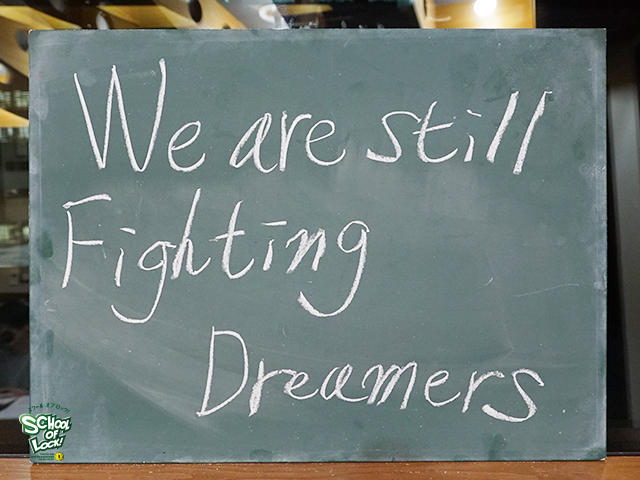 We are still
Fighting
Dreamers
スクール・オブ・ロック!
SCHOOL
OF
LOCK!